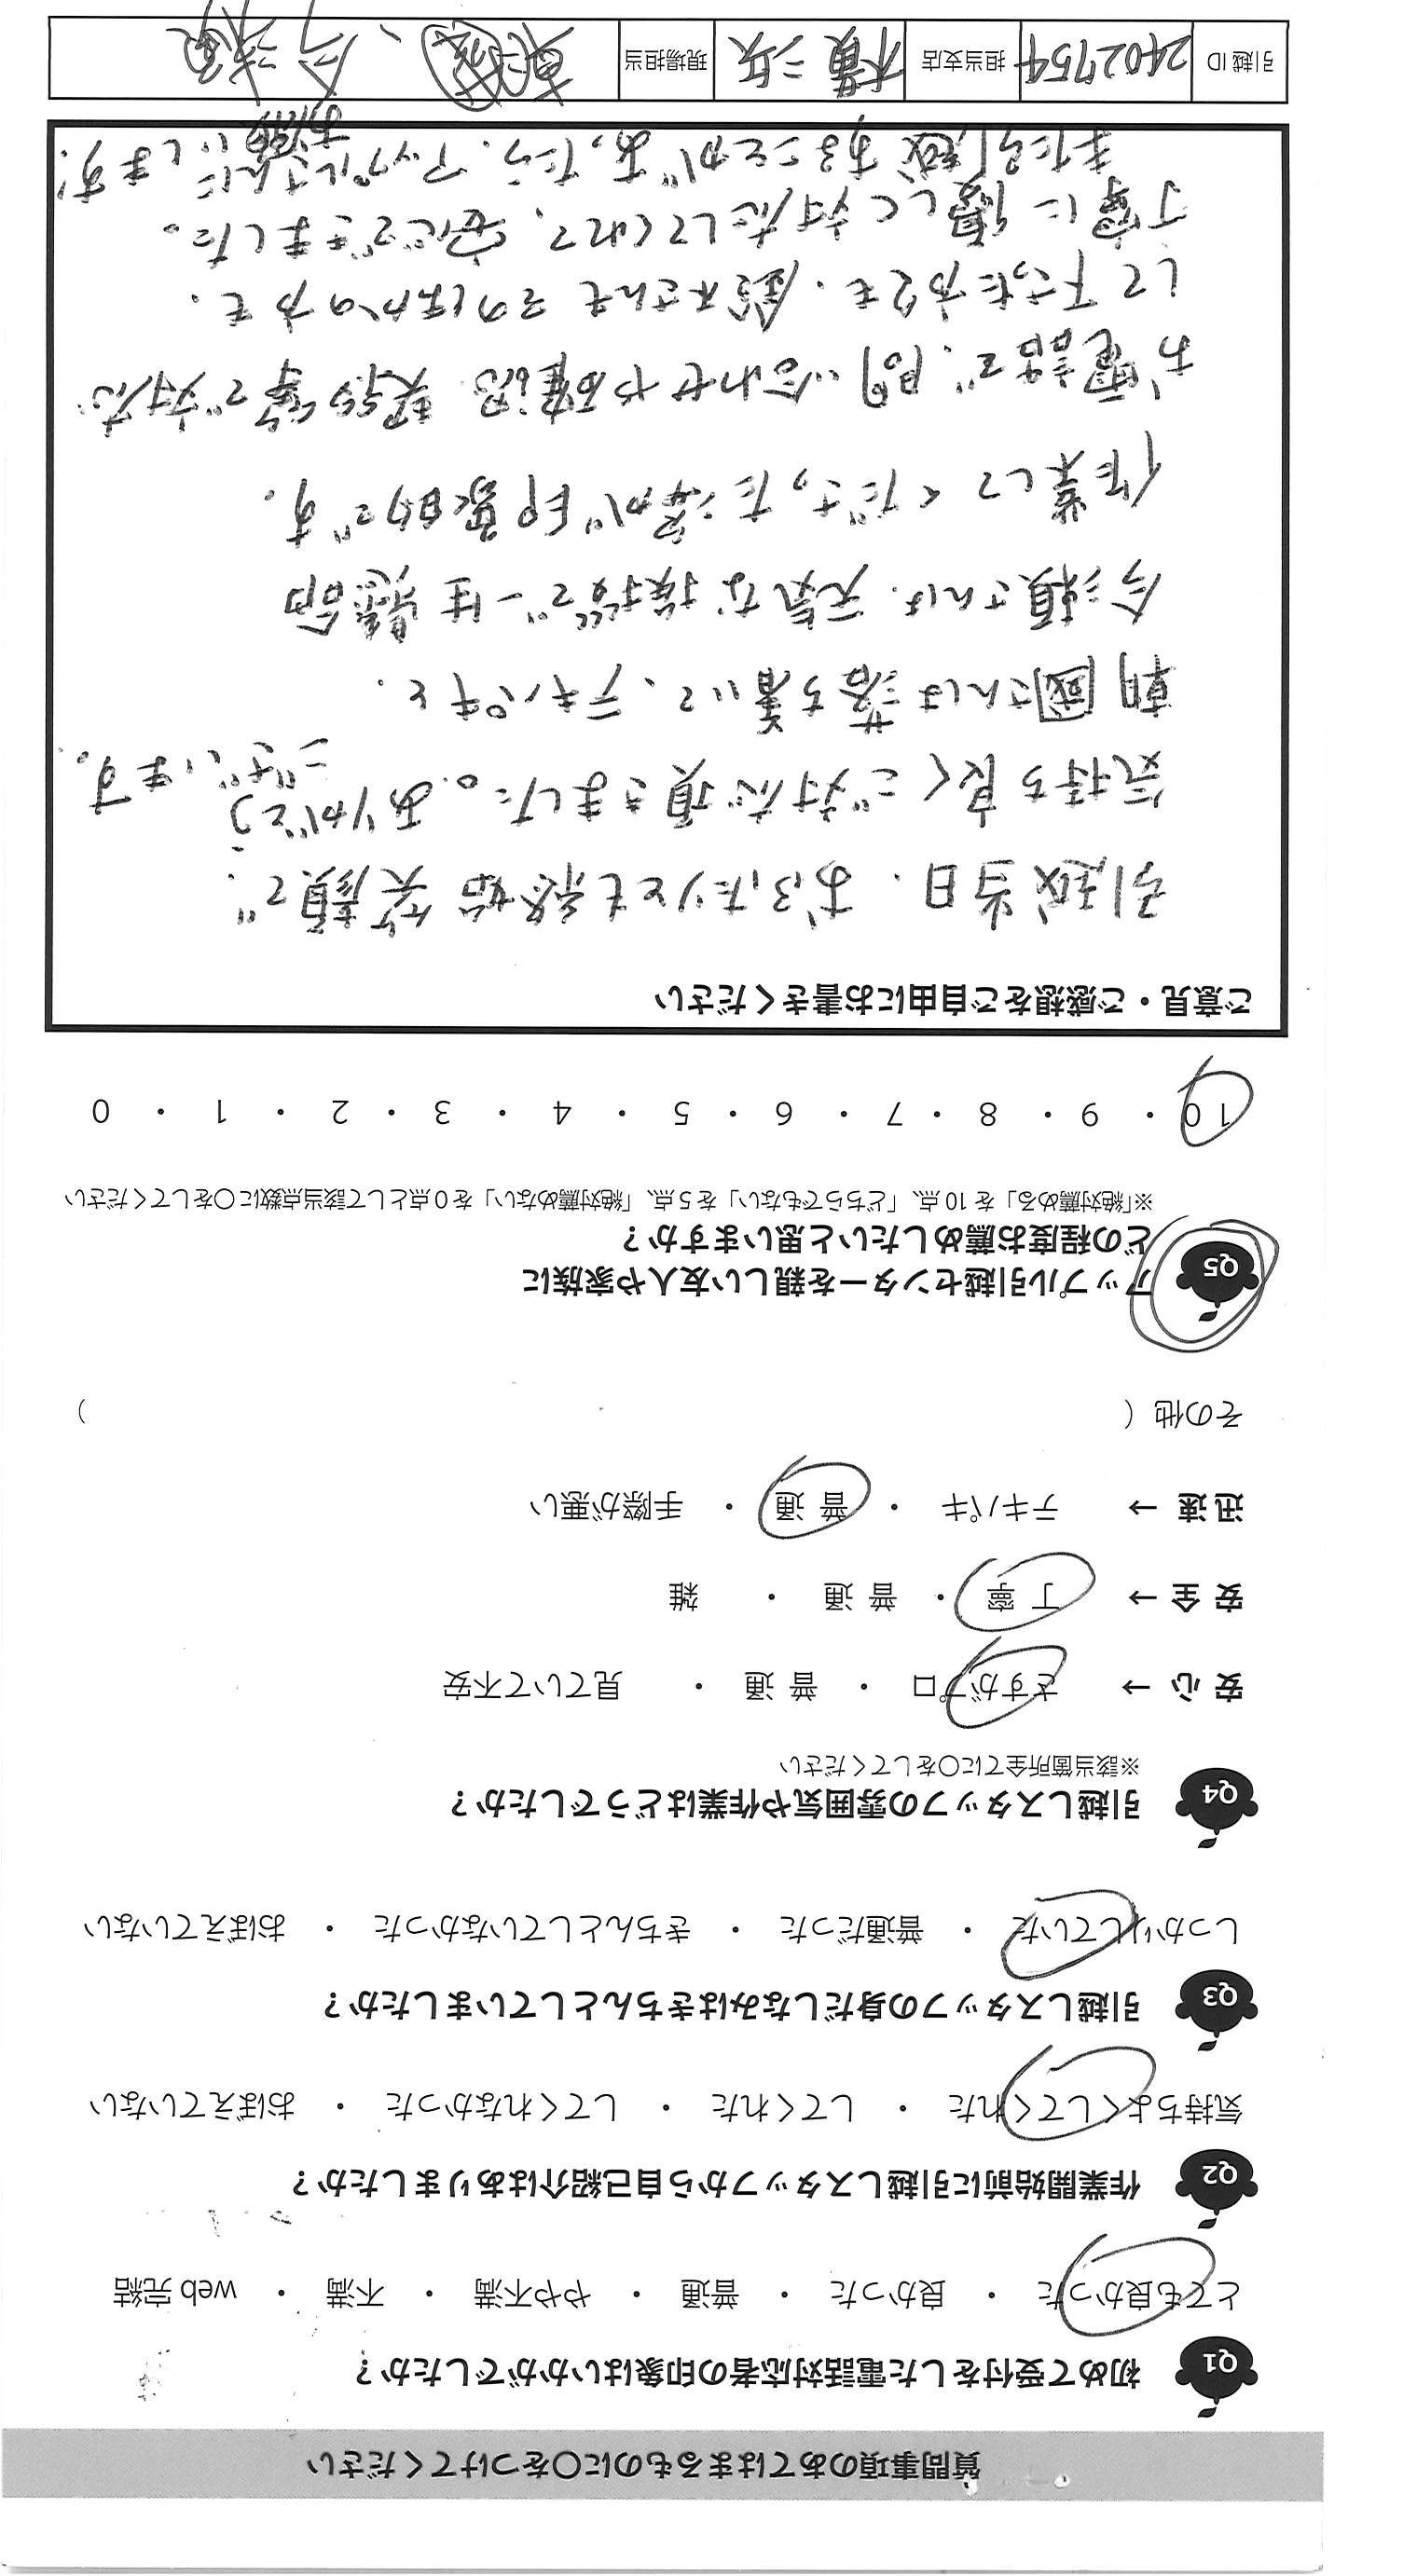 質問事項のあてはまるものに○をつけてください
Q1 初めて受付をした電話対応者の印象はいかがでしたか？
とても良かった ・ 良かった ・ 普通 ・ やや不満 ・ 不満 ・ web 完結
Q2 作業開始前に引越しスタッフから自己紹介はありましたか？
気持ちよくしてくれた ・ してくれた ・ してくれなかった ・ おぼえていない
Q3 引越しスタッフの身だしなみはきちんとしていましたか？
しっかりしていた ・ 普通だった ・ きちんとしていなかった ・ おぼえていない
Q4 引越しスタッフの雰囲気や作業はどうでしたか？
※該当箇所全てに○をしてください
安 心 → さすがプロ ・ 普 通 ・ 見ていて不安
安 全 → 丁 寧 ・ 普 通 ・ 雑
迅 速 → テキパキ ・ 普 通 ・ 手際が悪い
その他（ ）
Q5 アップル引越センターを親しい友人や家族に
どの程度お薦めしたいと思いますか？
※「絶対薦める」を 10 点、「どちらでもない」を 5 点、「絶対薦めない」を 0 点として該当点数に○をしてください
10 ・ 9 ・ 8 ・ 7 ・ 6 ・ 5 ・ 4 ・ 3 ・ 2 ・ 1 ・ 0
ご意見・ご感想をご自由にお書きください
引越当日、おふたりとも終始笑顔で、
気持ち良くご対応頂きました。ありがとう
ございます。
朝國さんは落ち着いて、テキパキと、
今瀬さんは、元気な挨拶で一生懸命
作業してくださった姿が印象的です。
お電話で、問い合わせや確認、契約等で対応
して下さった方々も、鈴木さんもそのほかの方も、
丁寧に優しく対応してくれて、安心できました。
また引越することがあったら、アップルさんに
お願いします!
引越 ID 2402754 担当支店 横浜 現場担当 朝國、今瀬